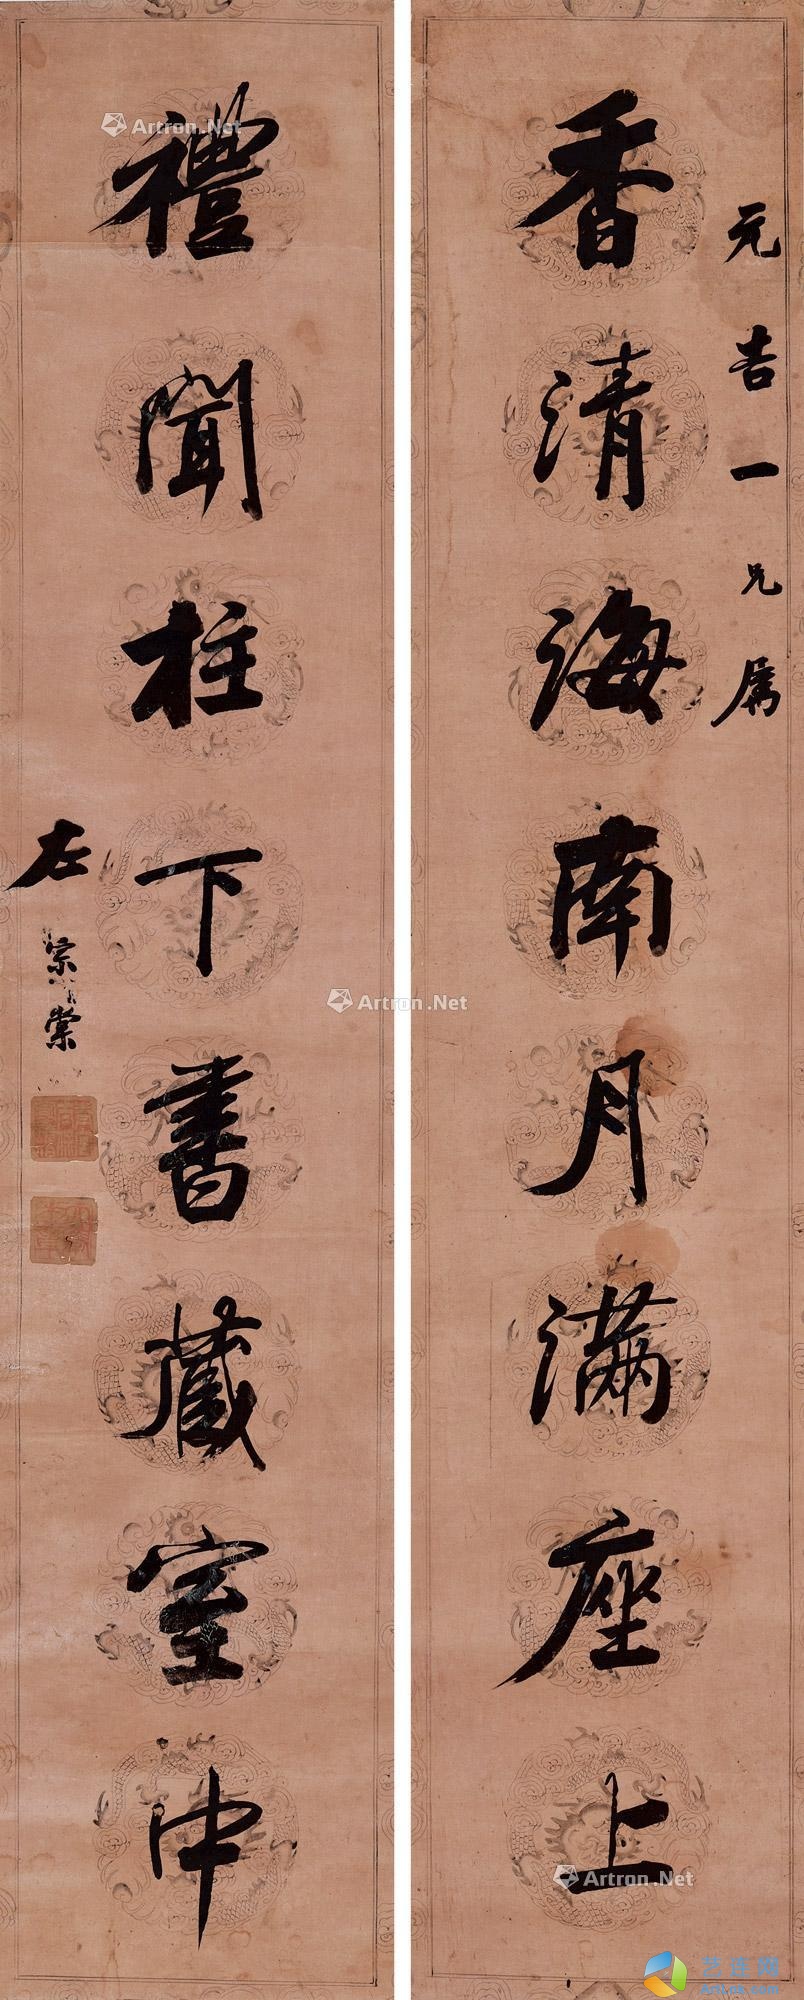 元吉一兄属
香清海南月满座上
禮聞柱下書藏室中
左宗棠
Artron.Net
Artron.Net
Artron.Net